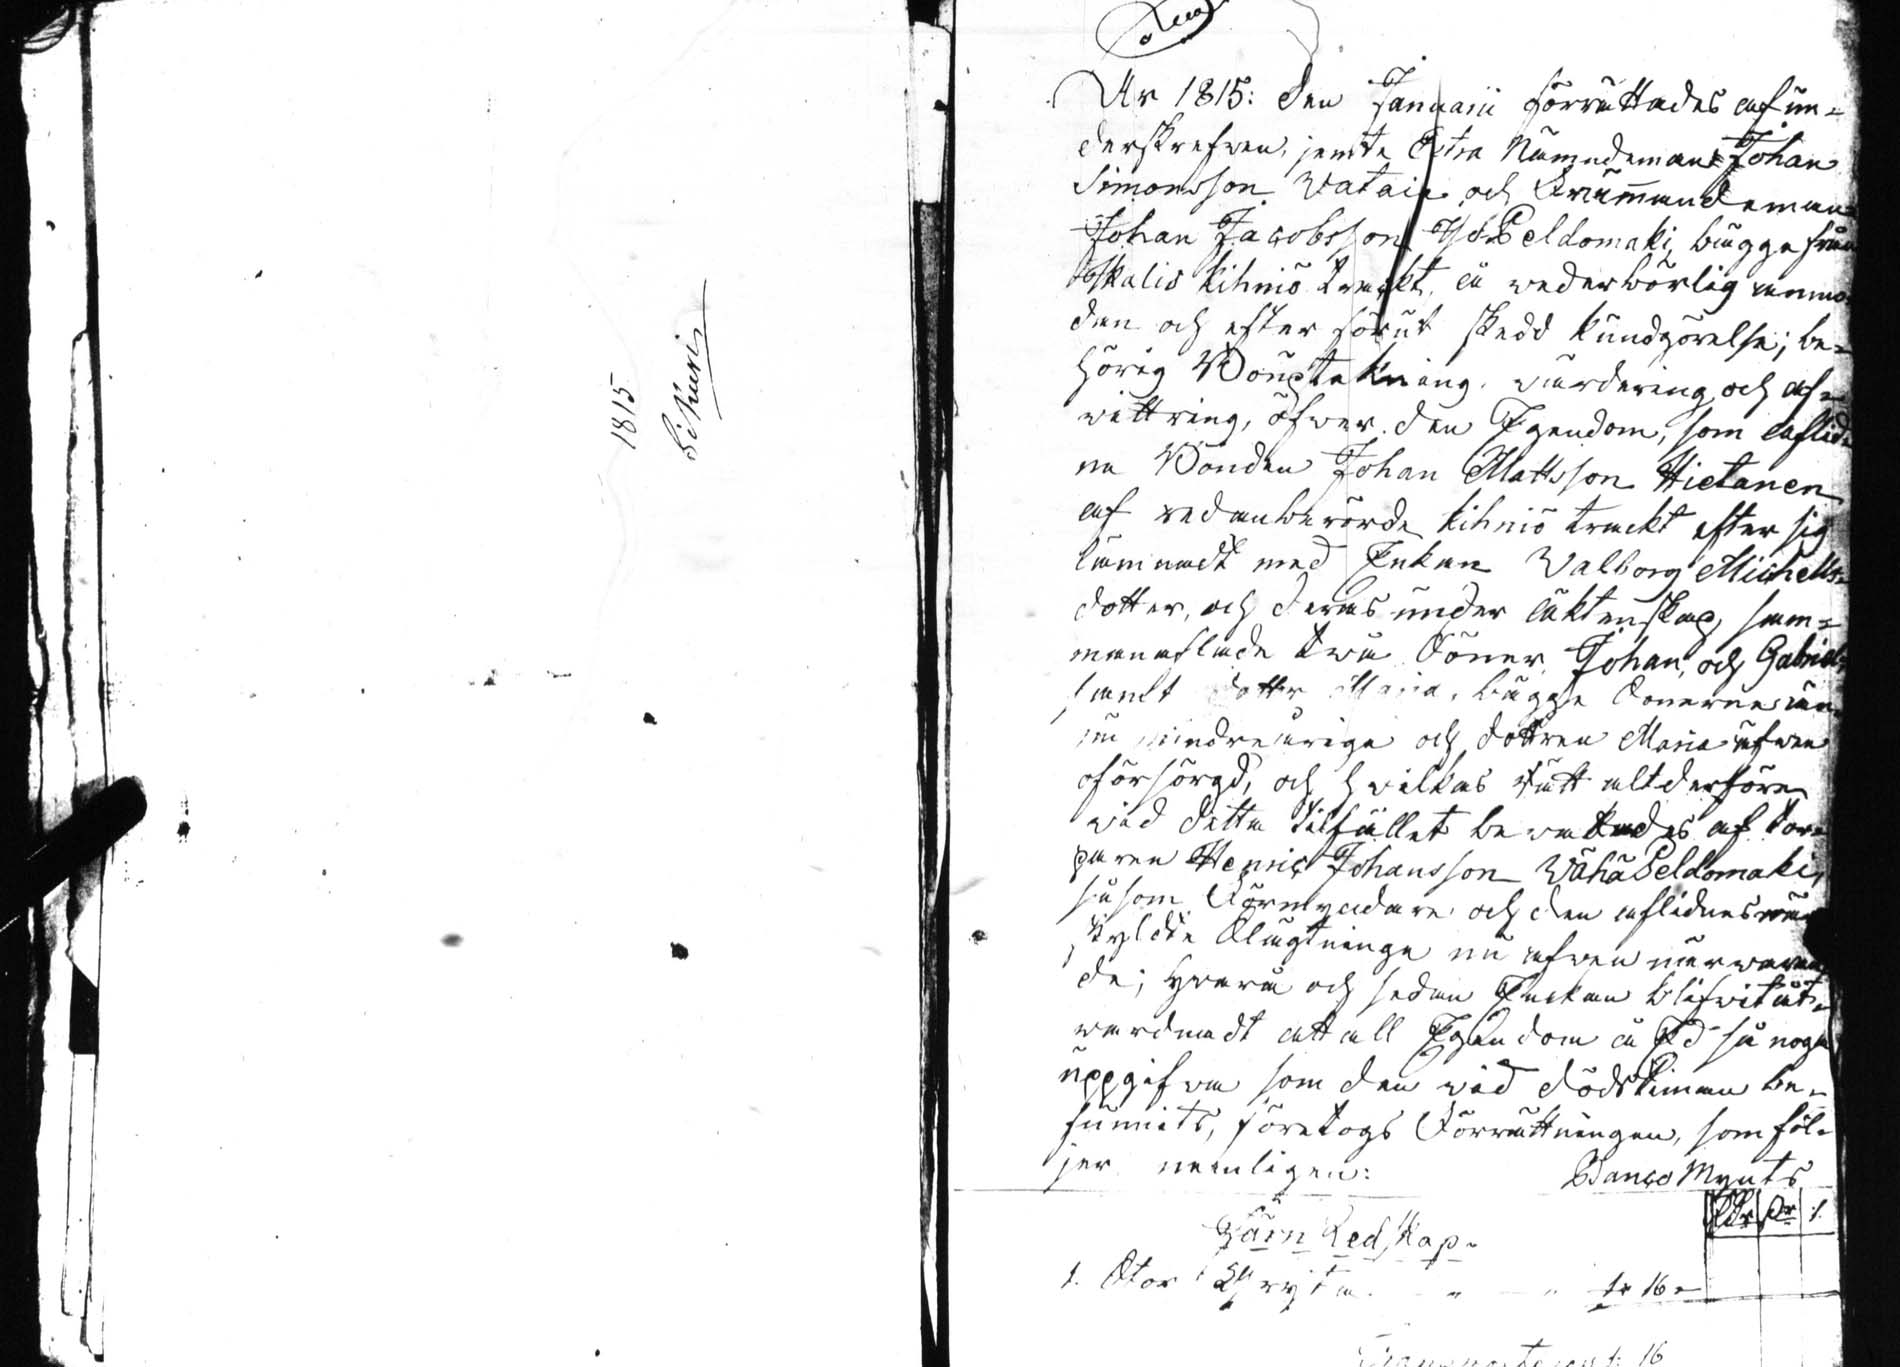 1815
Sikuri
År 1815: den Januarii förrättades af un-
derskrefven, jemte Extra Nämndeman Johan
Simonsson Wataja och Nämndeman
Johan Jacobsson Iso Peldomaki, bägge från
Ikalis Kihniö trackt, å wederbörlig anmo-
dan och efter förut skedd kundgörelse; be-
hörig Boupteknäng, värdering och af-
wittring, öfwer den Egendom, som aflid-
ne Bonden Johan Mattsson Hietanen
af redanberörde Kihniö trackt efter sig
lämnadt med Enkan Walborg Michells-
dotter, och deras under äktenskap sam-
manaflade twå Söner Johan, och Gabriel,
samt dotter Maria, bägge Sönerne än-
nu mindreåriga och dottren Maria äfwen
oförsörgd, och hwilkas rätt altderföre
wid detta tilfället bewakades af Tor-
paren Henric Johansson WähäPeldomaki,
såsom Förmyndare och den aflidnes
skyldte Slägtninge nu äfwen närwaran-
de; hwara och sedan Enkan blifwit åt-
warnadt att all Egendom å Ed så noga
uppgifwa som den wid dödstiman be-
funnits, företogs Förrättningen, som föl-
jer nemligen:
Banco Mynts
Rdr sr r.
Järn Redskap.
1. Stor Gryta - - - 1 16 -
16